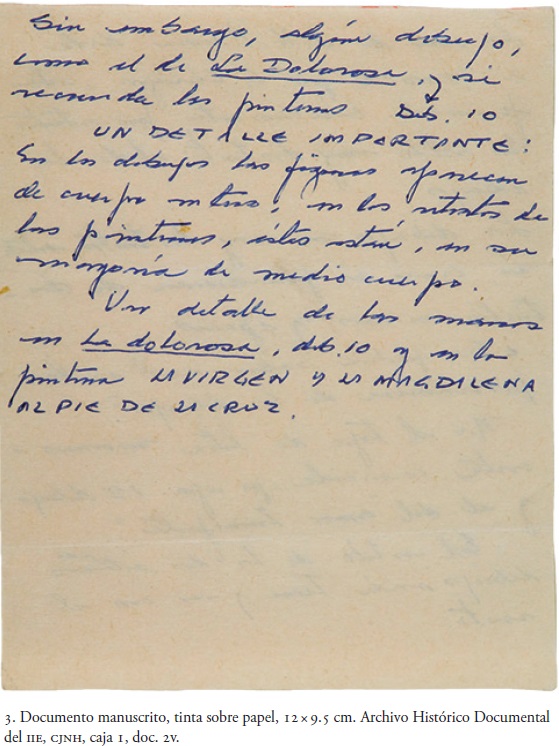 Sin embargo, algún dibujo,
como el de La Dolorosa, y si
recuerda las pinturas Dib. 10
UN DETALLE IMPORTANTE:
En los dibujos las figuras aparecen
de cuerpo entero, en los retratos de
las pinturas, éstos están, en su
mayoría de medio cuerpo.
Un detalle de las manos
en La dolorosa, dib. 10 y en la
pintura LA VIRGEN Y LA MAGDALENA
AL PIE DE LA CRUZ.
3. Documento manuscrito, tinta sobre papel, 12 × 9.5 cm. Archivo Histórico Documental
del IIE, CJNH, caja 1, doc. 2v.